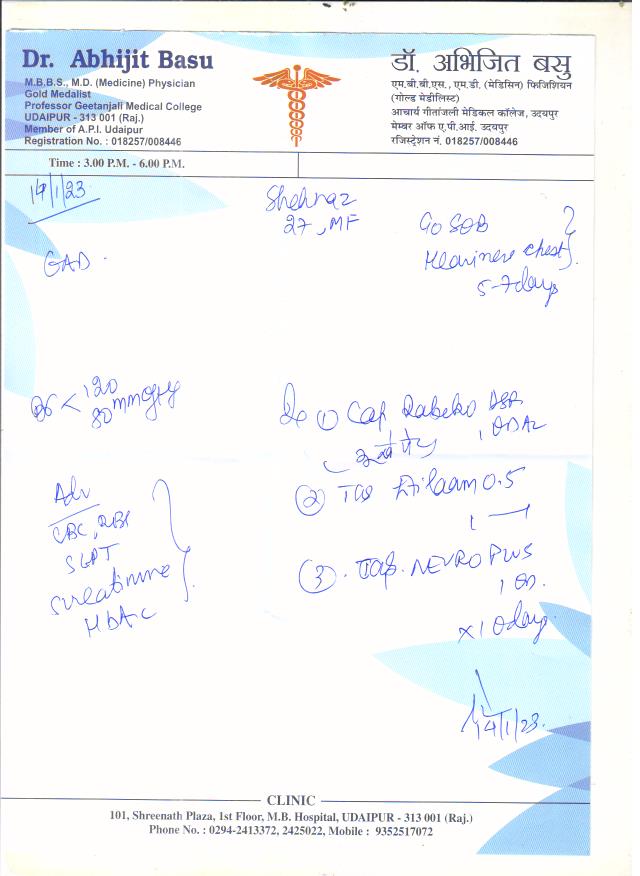 Dr. Abhijit Basu
M.B.B.S., M.D. (Medicine) Physician
Gold Medalist
Professor Geetanjali Medical College
UDAIPUR - 313 001 (Raj.)
Member of A.P.I. Udaipur
Registration No. : 018257/008446
डॉ. अभिजित बसु
एम.बी.बी.एस., एम.डी. (मेडिसिन) फिजिशियन
(गोल्ड मेडीलिस्ट)
आचार्य गीतांजली मेडिकल कॉलेज, उदयपुर
मेम्बर ऑफ ए.पी.आई. उदयपुर
रजिस्ट्रेशन नं. 018257/008446
Time : 3.00 P.M. - 6.00 P.M.
14/1/23
Shehnaz
27, MF
c/o SOB
Heaviness chest
5-7 days
GAD.
120
80 mmHg
Adv
CBC, RBS
SGPT
S creatinine
HbA1c
① Cap Rabeko DSR
1 OD AC
② Tab 0.5
③. Tab. NEURO PLUS
1 OD.
x 10 days
14/1/23.
CLINIC
101, Shreenath Plaza, 1st Floor, M.B. Hospital, UDAIPUR - 313 001 (Raj.)
Phone No. : 0294-2413372, 2425022, Mobile : 9352517072